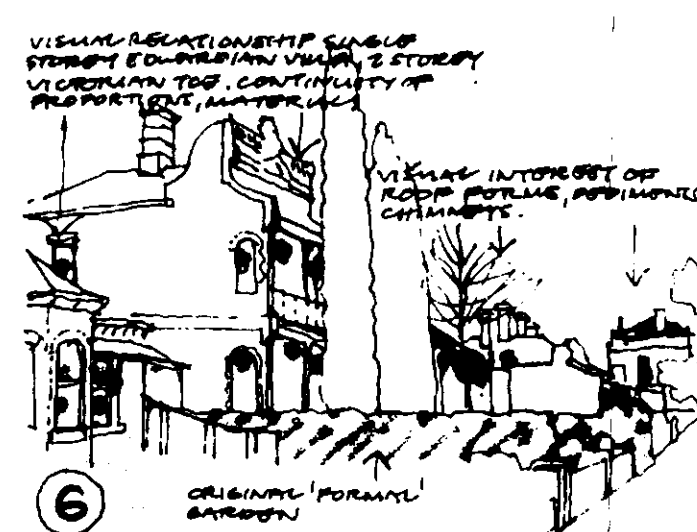 VISUAL RELATIONSHIP SINGLE
STOREY EDWARDIAN VILLA, 2 STOREY
VICTORIAN TCE. CONTINUITY OF
PROPORTIONS, MATERIALS
VISUAL INTEREST OF
ROOF FORMS, PEDIMENTS
CHIMNEYS.
6
ORIGINAL 'FORMAL'
GARDEN